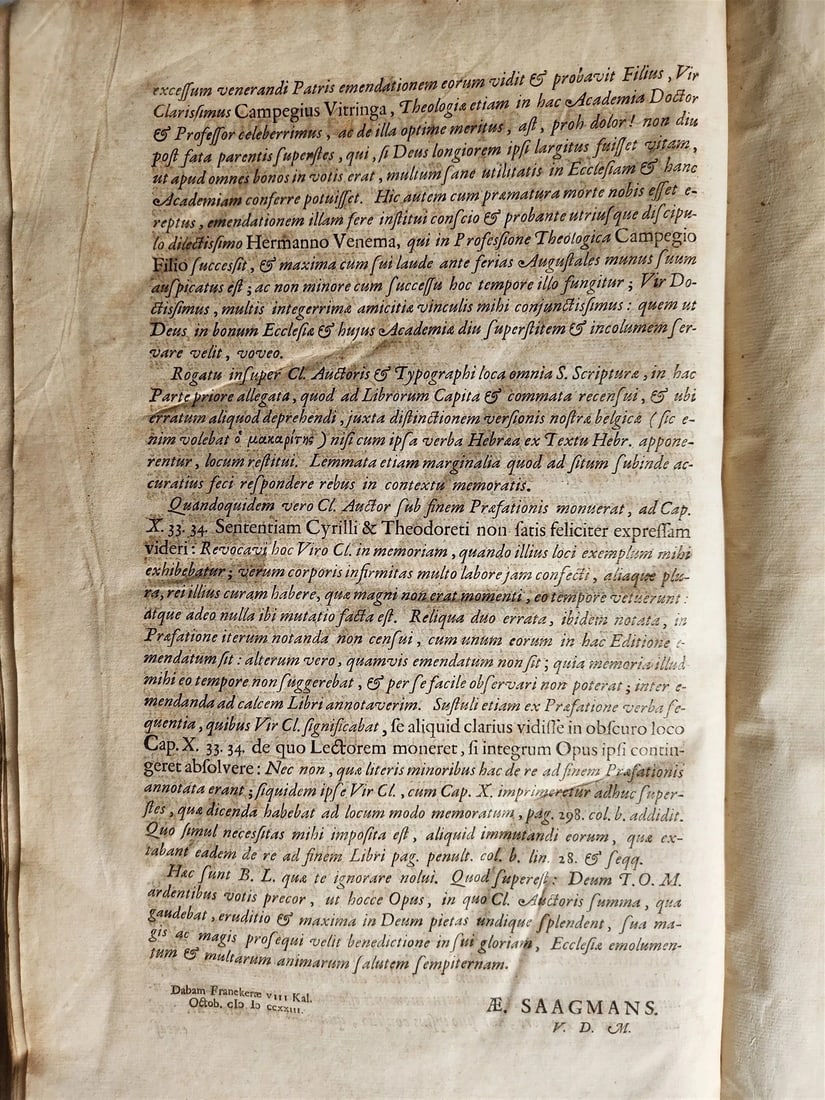 excessum venerandi Patris emendationem eorum vidit & probavit Filius, Vir
Clarissimus Campegius Vitringa, Theologiæ etiam in hac Academia Doctor
& Professor celeberrimus, ac de illa optime meritus, ast, proh dolor! non diu
post fata parentis superstes, qui, si Deus longiorem ipsi largitus fuisset vitam,
ut apud omnes bonos in votis erat, multum sane utilitatis in Ecclesiam & hanc
Academiam conferre potuisset. Hic autem cum præmatura morte nobis esset e-
reptus, emendationem illam fere institui conscio & probante utriusque discipu-
lo dilectissimo Hermanno Venema, qui in Professione Theologica Campegio
Filio successit, & maxima cum sui laude ante ferias Augustales munus suum
auspicatus est; ac non minore cum successu hoc tempore illo fungitur; Vir Do-
ctissimus, multis integerrimæ amicitiæ vinculis mihi conjunctissimus: quem ut
Deus in bonum Ecclesiæ & hujus Academiæ diu superstitem & incolumem ser-
vare velit, voveo.
Rogatu insuper Cl. Auctoris & Typographi loca omnia S. Scripturæ, in hac
Parte priore allegata, quod ad Librorum Capita & commata recensui, & ubi
erratum aliquod deprehendi, juxta distinctionem versionis nostræ belgicæ (sic e-
nim volebat ὁ μακαρίτης) nisi cum ipsa verba Hebræa ex Textu Hebr. appone-
rentur, locum restitui. Lemmata etiam marginalia quod ad situm subinde ac-
curatius feci respondere rebus in contextu memoratis.
Quandoquidem vero Cl. Auctor sub finem Præfationis monuerat, ad Cap.
X. 33. 34. Sententiam Cyrilli & Theodoreti non satis feliciter expressam
videri: Revocavi hoc Viro Cl. in memoriam, quando illius loci exemplum mihi
exhibebatur; verum corporis infirmitas multo labore jam confecti, aliaque plu-
ra, rei illius curam habere, quæ magni non erat momenti, eo tempore vetuerunt:
atque adeo nulla ibi mutatio facta est. Reliqua duo errata, ibidem notata, in
Præfatione iterum notanda non censui, cum unum eorum in hac Editione e-
mendatum sit: alterum vero, quamvis emendatum non sit; quia memoria illud
mihi eo tempore non suggerebat, & per se facile observari non poterat; inter e-
mendanda ad calcem Libri annotaverim. Sustuli etiam ex Præfatione verba se-
quentia, quibus Vir Cl. significabat, se aliquid clarius vidisse in obscuro loco
Cap. X. 33. 34. de quo Lectorem moneret, si integrum Opus ipsi contin-
geret absolvere: Nec non, quæ literis minoribus hac de re ad finem Præfationis
annotata erant; siquidem ipse Vir Cl., cum Cap. X. imprimeretur adhuc super-
stes, quæ dicenda habebat ad locum modo memoratum, pag. 298. col. b. addidit.
Quo simul necessitas mihi imposita est, aliquid immutandi eorum, quæ ex-
tabant eadem de re ad finem Libri pag. penult. col. b. lin. 28. & seqq.
Hæc sunt B. L. quæ te ignorare nolui. Quod superest: Deum T. O. M.
ardentibus votis precor, ut hocce Opus, in quo Cl. Auctoris summa, qua
gaudebat, eruditio & maxima in Deum pietas undique splendent, sua ma-
gis ac magis prosequi velit benedictione in sui gloriam, Ecclesiæ emolumen-
tum & multarum animarum salutem sempiternam.
Dabam Franekeræ VIII Kal.
Octob. cIɔ. Iɔ ccxxiii.
Æ. SAAGMANS.
V. D. M.